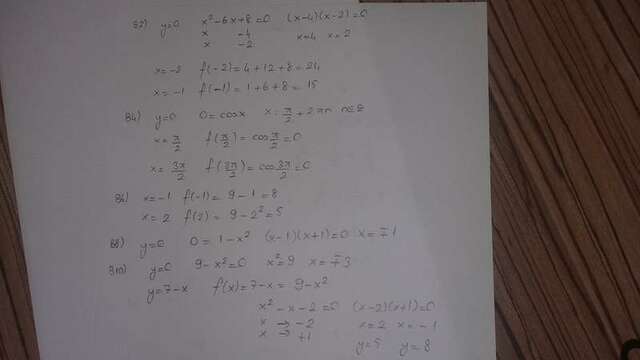 82) y=0 x²-6x+8=0 (x-4)(x-2)=0
x -4 x=4 x=2
x -2
x=-2 f(-2)=4+12+8=24
x=-1 f(-1)=1+6+8=15
84) y=0 0=cosx x=π/2+2πn n∈Z
x=π/2 f(π/2)=cosπ/2=0
x=3π/2 f(3π/2)=cos3π/2=0
86) x=-1 f(-1)=9-1=8
x=2 f(2)=9-2²=5
88) y=0 0=1-x² (x-1)(x+1)=0 x=∓1
y=0 9-x²=0 x²=9 x=∓3
y=7-x f(x)=7-x=9-x²
x²-x-2=0 (x-2)(x+1)=0
x → -2 x=2 x=-1
x → +1 y=5 y=8